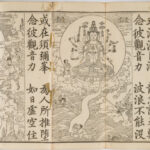 念彼觀音力　波浪不能沒
或在須彌峯　為人所推墮
念彼觀音力　如日虛空住